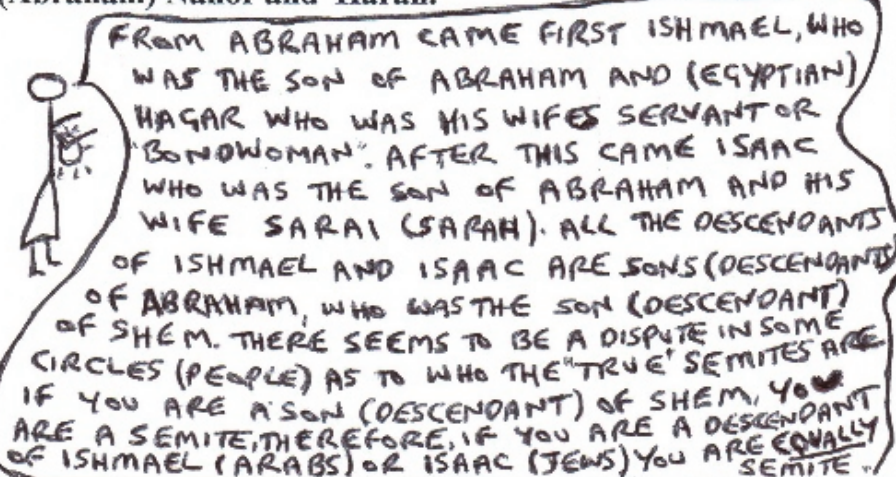 (Abraham) Nahor and Haran.
FROM ABRAHAM CAME FIRST ISHMAEL, WHO
WAS THE SON OF ABRAHAM AND (EGYPTIAN)
HAGAR WHO WAS HIS WIFES SERVANT OR
"BONDWOMAN". AFTER THIS CAME ISAAC
WHO WAS THE SON OF ABRAHAM AND HIS
WIFE SARAI (SARAH). ALL THE DESCENDANTS
OF ISHMAEL AND ISAAC ARE SONS (DESCENDANTS)
OF ABRAHAM, WHO WAS THE SON (DESCENDANT)
OF SHEM. THERE SEEMS TO BE A DISPUTE IN SOME
CIRCLES (PEOPLE) AS TO WHO THE "TRUE" SEMITES ARE
IF YOU ARE A SON (DESCENDANT) OF SHEM, YOU
ARE A SEMITE, THEREFORE, IF YOU ARE A DESCENDANT
OF ISHMAEL (ARABS) OR ISAAC (JEWS) YOU ARE EQUALLY
SEMITE.